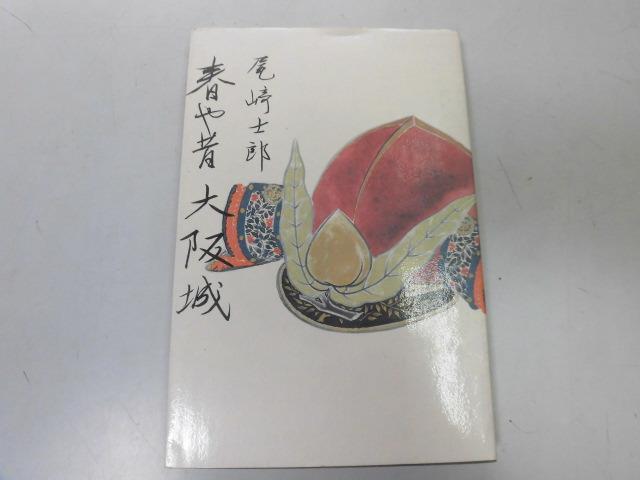 尾﨑士郎
春や昔 大阪城